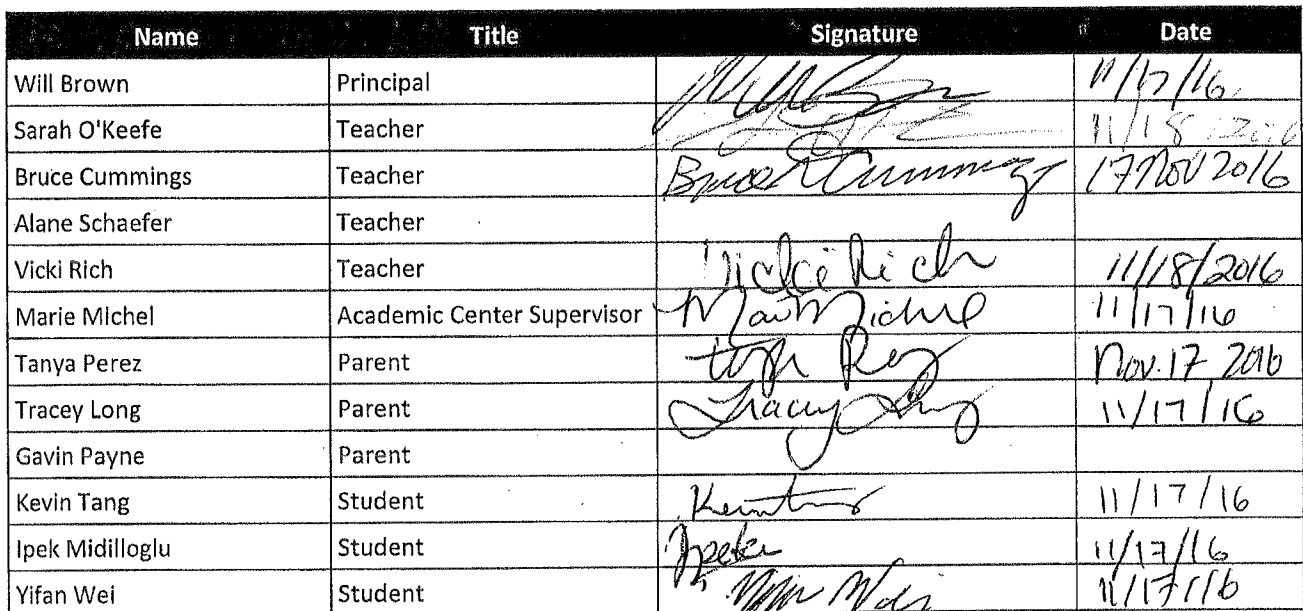 Name Title Signature Date
Will Brown Principal 11/17/16
Sarah O'Keefe Teacher 11/18/2016
Bruce Cummings Teacher Bruce Cummings 17 Nov 2016
Alane Schaefer Teacher
Vicki Rich Teacher Vicki Rich 11/18/2016
Marie Michel Academic Center Supervisor Michel 11/17/16
Tanya Perez Parent Nov. 17 2016
Tracey Long Parent Tracey Long 11/17/16
Gavin Payne Parent
Kevin Tang Student 11/17/16
Ipek Midilloglu Student 11/17/16
Yifan Wei Student Wei 11/17/16